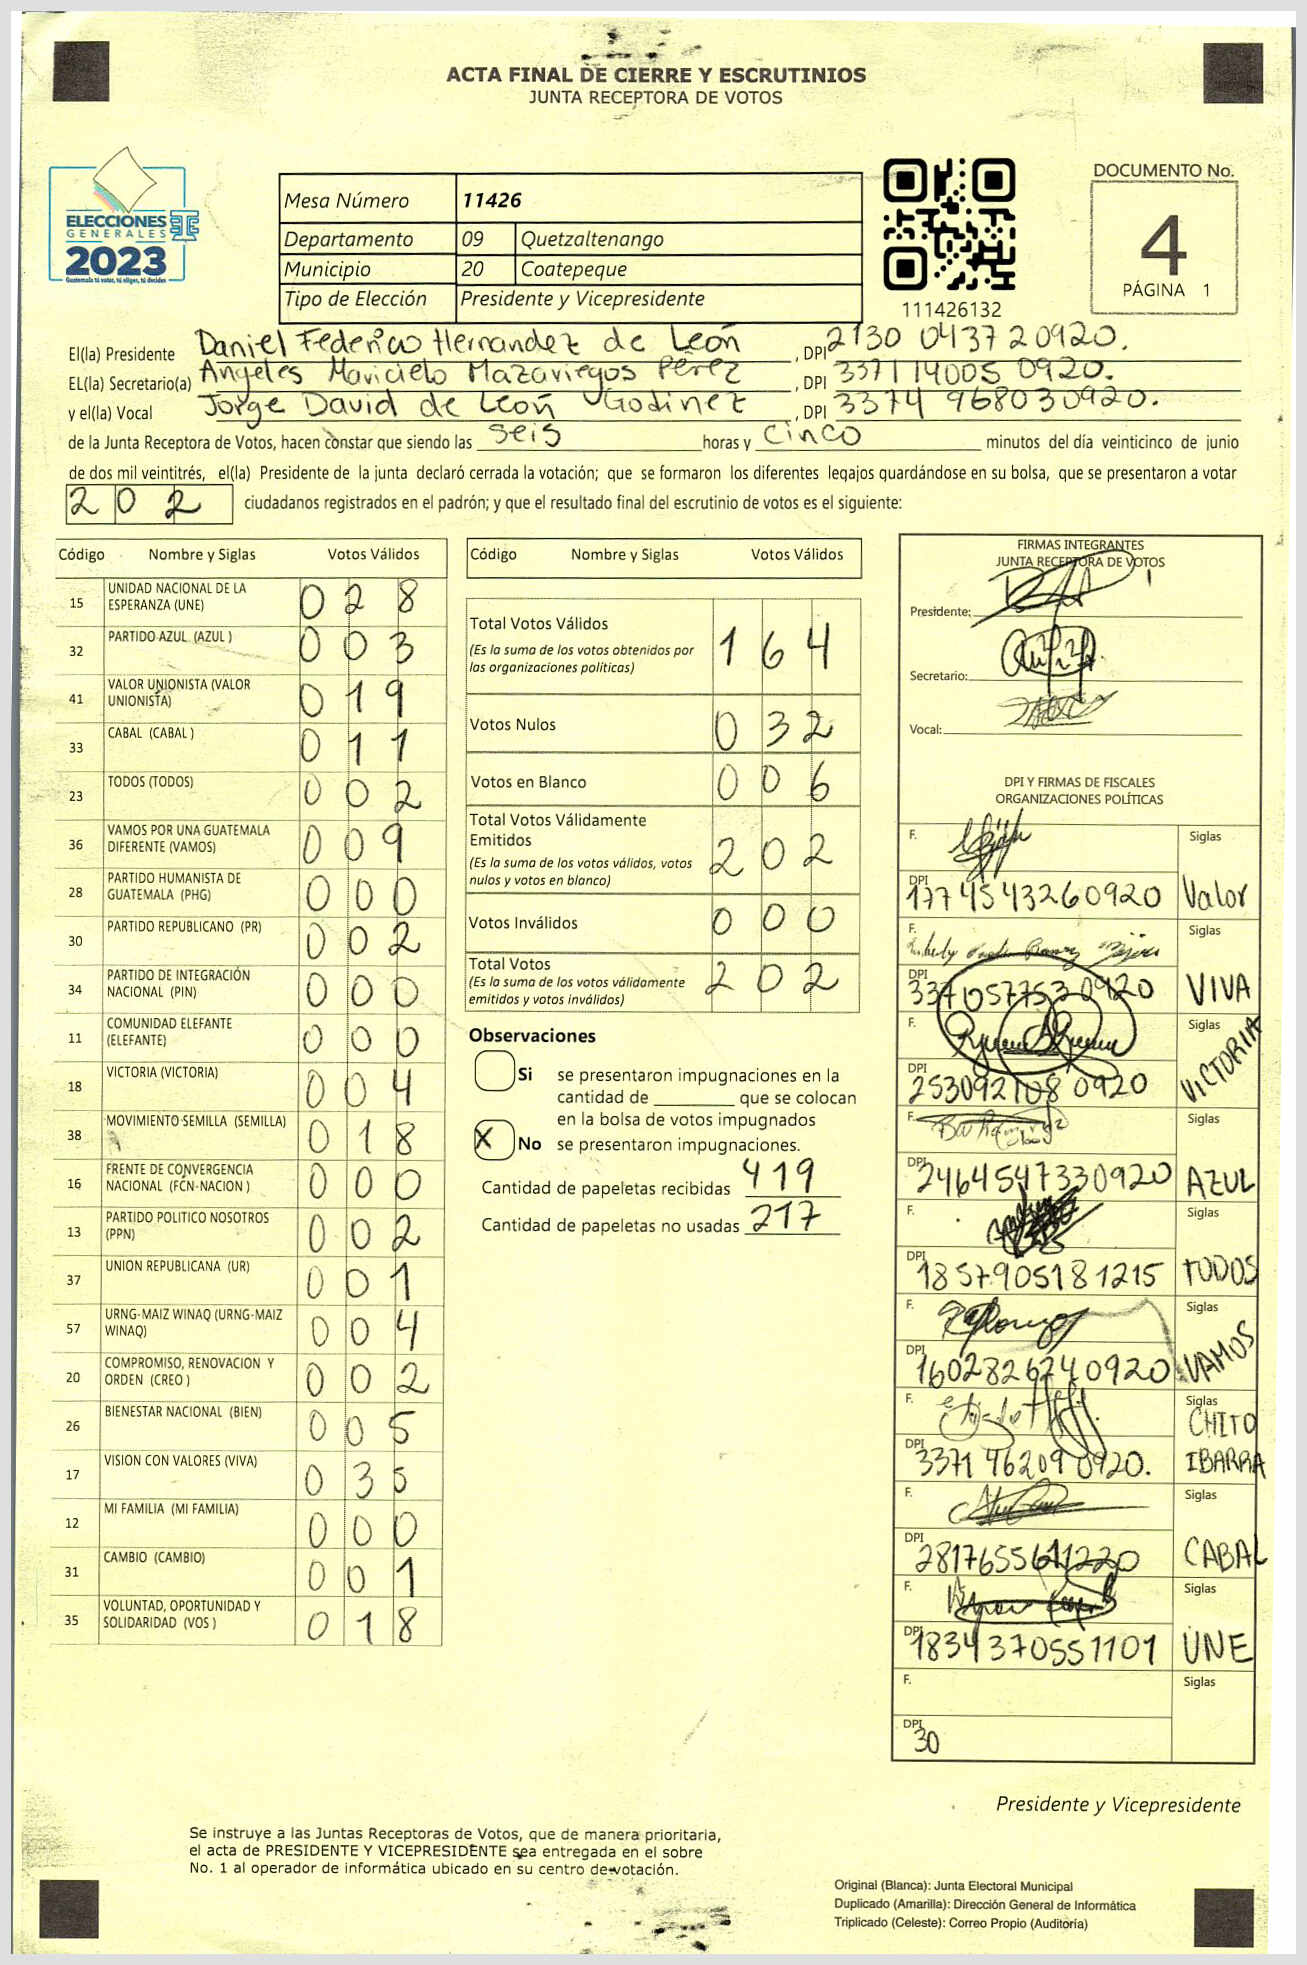 ACTA FINAL DE CIERRE Y ESCRUTINIOS
JUNTA RECEPTORA DE VOTOS
ELECCIONES
GENERALES
2023
Guatemala tú votas, tú eliges, tú decides
Mesa Número 11426
Departamento 09 Quetzaltenango
Municipio 20 Coatepeque
Tipo de Elección Presidente y Vicepresidente
111426132
DOCUMENTO No.
4
PÁGINA 1
El(la) Presidente Daniel Federico Hernandez de León, DPI 2130 04372 0920.
EL(la) Secretario(a) Angeles Maricielo Mazariegos Pérez, DPI 337114005 0920.
y el(la) Vocal Jorge David de León Godinez, DPI 3374 968030920.
de la Junta Receptora de Votos, hacen constar que siendo las seis horas y cinco minutos del día veinticinco de junio
de dos mil veintitrés, el(la) Presidente de la junta declaró cerrada la votación; que se formaron los diferentes legajos guardándose en su bolsa, que se presentaron a votar
202 ciudadanos registrados en el padrón; y que el resultado final del escrutinio de votos es el siguiente:
Código Nombre y Siglas Votos Válidos
15 UNIDAD NACIONAL DE LA ESPERANZA (UNE) 028
32 PARTIDO AZUL (AZUL ) 003
41 VALOR UNIONISTA (VALOR UNIONISTA) 019
33 CABAL (CABAL ) 011
23 TODOS (TODOS) 002
36 VAMOS POR UNA GUATEMALA DIFERENTE (VAMOS) 009
28 PARTIDO HUMANISTA DE GUATEMALA (PHG) 000
30 PARTIDO REPUBLICANO (PR) 002
34 PARTIDO DE INTEGRACIÓN NACIONAL (PIN) 000
11 COMUNIDAD ELEFANTE (ELEFANTE) 000
18 VICTORIA (VICTORIA) 004
38 MOVIMIENTO SEMILLA (SEMILLA) 018
16 FRENTE DE CONVERGENCIA NACIONAL (FCN-NACION ) 000
13 PARTIDO POLITICO NOSOTROS (PPN) 002
37 UNION REPUBLICANA (UR) 001
57 URNG-MAIZ WINAQ (URNG-MAIZ WINAQ) 004
20 COMPROMISO, RENOVACION Y ORDEN (CREO ) 002
26 BIENESTAR NACIONAL (BIEN) 005
17 VISION CON VALORES (VIVA) 035
12 MI FAMILIA (MI FAMILIA) 000
31 CAMBIO (CAMBIO) 001
35 VOLUNTAD, OPORTUNIDAD Y SOLIDARIDAD (VOS ) 018
Código Nombre y Siglas Votos Válidos
Total Votos Válidos 164
(Es la suma de los votos obtenidos por
las organizaciones políticas)
Votos Nulos 032
Votos en Blanco 006
Total Votos Válidamente
Emitidos 202
(Es la suma de los votos válidos, votos
nulos y votos en blanco)
Votos Inválidos 000
Total Votos 202
(Es la suma de los votos válidamente
emitidos y votos inválidos)
Observaciones
Si se presentaron impugnaciones en la
cantidad de ________ que se colocan
en la bolsa de votos impugnados
X No se presentaron impugnaciones.
Cantidad de papeletas recibidas 419
Cantidad de papeletas no usadas 217
FIRMAS INTEGRANTES
JUNTA RECEPTORA DE VOTOS
Presidente:
Secretario:
Vocal:
DPI Y FIRMAS DE FISCALES
ORGANIZACIONES POLÍTICAS
F. Siglas
DPI 1774543260920 Valor
F. Siglas
DPI 3371057753 0920 VIVA
F. Siglas
DPI 253092108 0920 VICTORIA
F. Siglas
DPI 2464547330920 AZUL
F. Siglas
DPI 1857905181215 TODOS
F. Siglas
DPI 1602826240920 VAMOS
F. Siglas
DPI 3371462090920. CHITO IBARRA
F. Siglas
DPI 2817655611220 CABAL
F. Siglas
DPI 1834370551101 UNE
F. Siglas
DPI 30
Presidente y Vicepresidente
Se instruye a las Juntas Receptoras de Votos, que de manera prioritaria,
el acta de PRESIDENTE Y VICEPRESIDENTE sea entregada en el sobre
No. 1 al operador de informática ubicado en su centro de votación.
Original (Blanca): Junta Electoral Municipal
Duplicado (Amarilla): Dirección General de Informática
Triplicado (Celeste): Correo Propio (Auditoría)